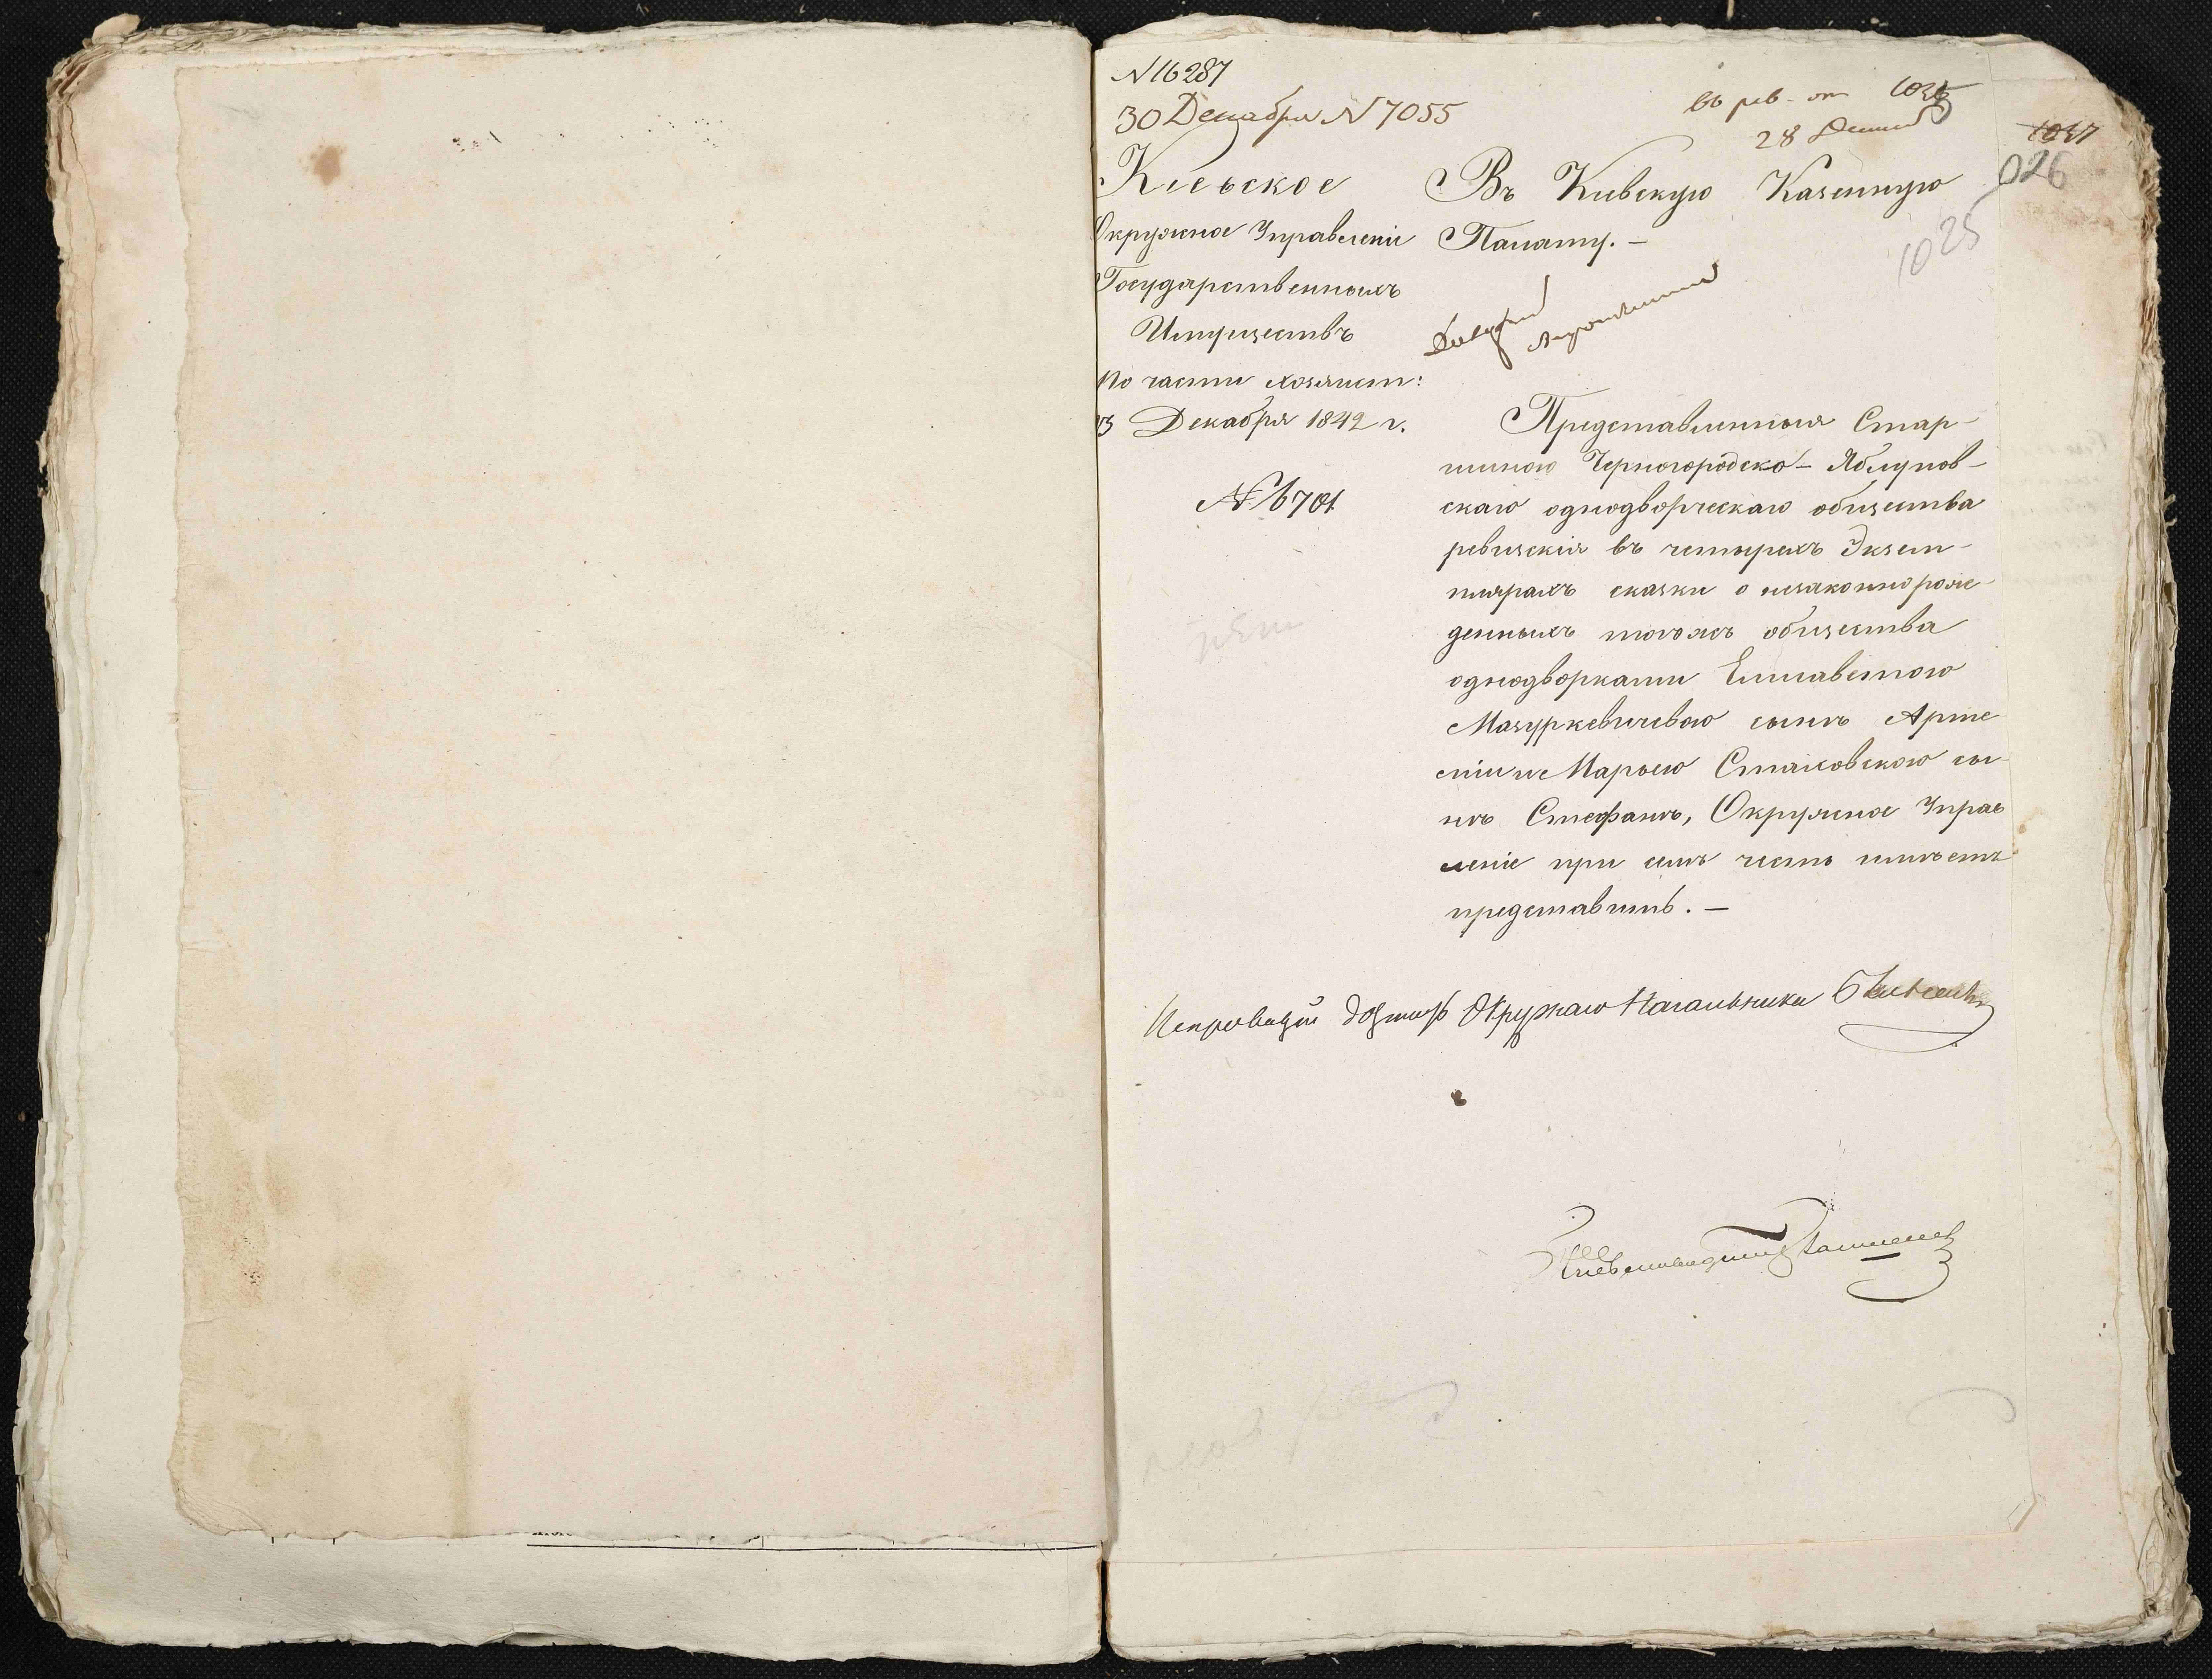 N 16287
30 Декабря N 7055
въ рев. от
28 Декаб
1037
026
1025
Кіевское
Окружное Управленіе
Государственныхъ
Имуществъ
по части хозяист:
Декабря 1842 г.
№ 6701
Въ Кіевскую Казенную
Палату. —
Представленныя Стар-
шиною Черногородско-Яблунов-
скаго однодворческаго общества
ревизскія въ четырехъ Экзем-
плярахъ сказки о незаконнорож-
денныхъ тогожъ общества
однодворками Елисаветою
Мазуркевичевою сынъ Арте-
мій и Марьею Стаховскою сы-
нъ Стефанъ, Окружное Управ
леніе при семъ честь имѣетъ
представить. —
Окружнаго Начальника